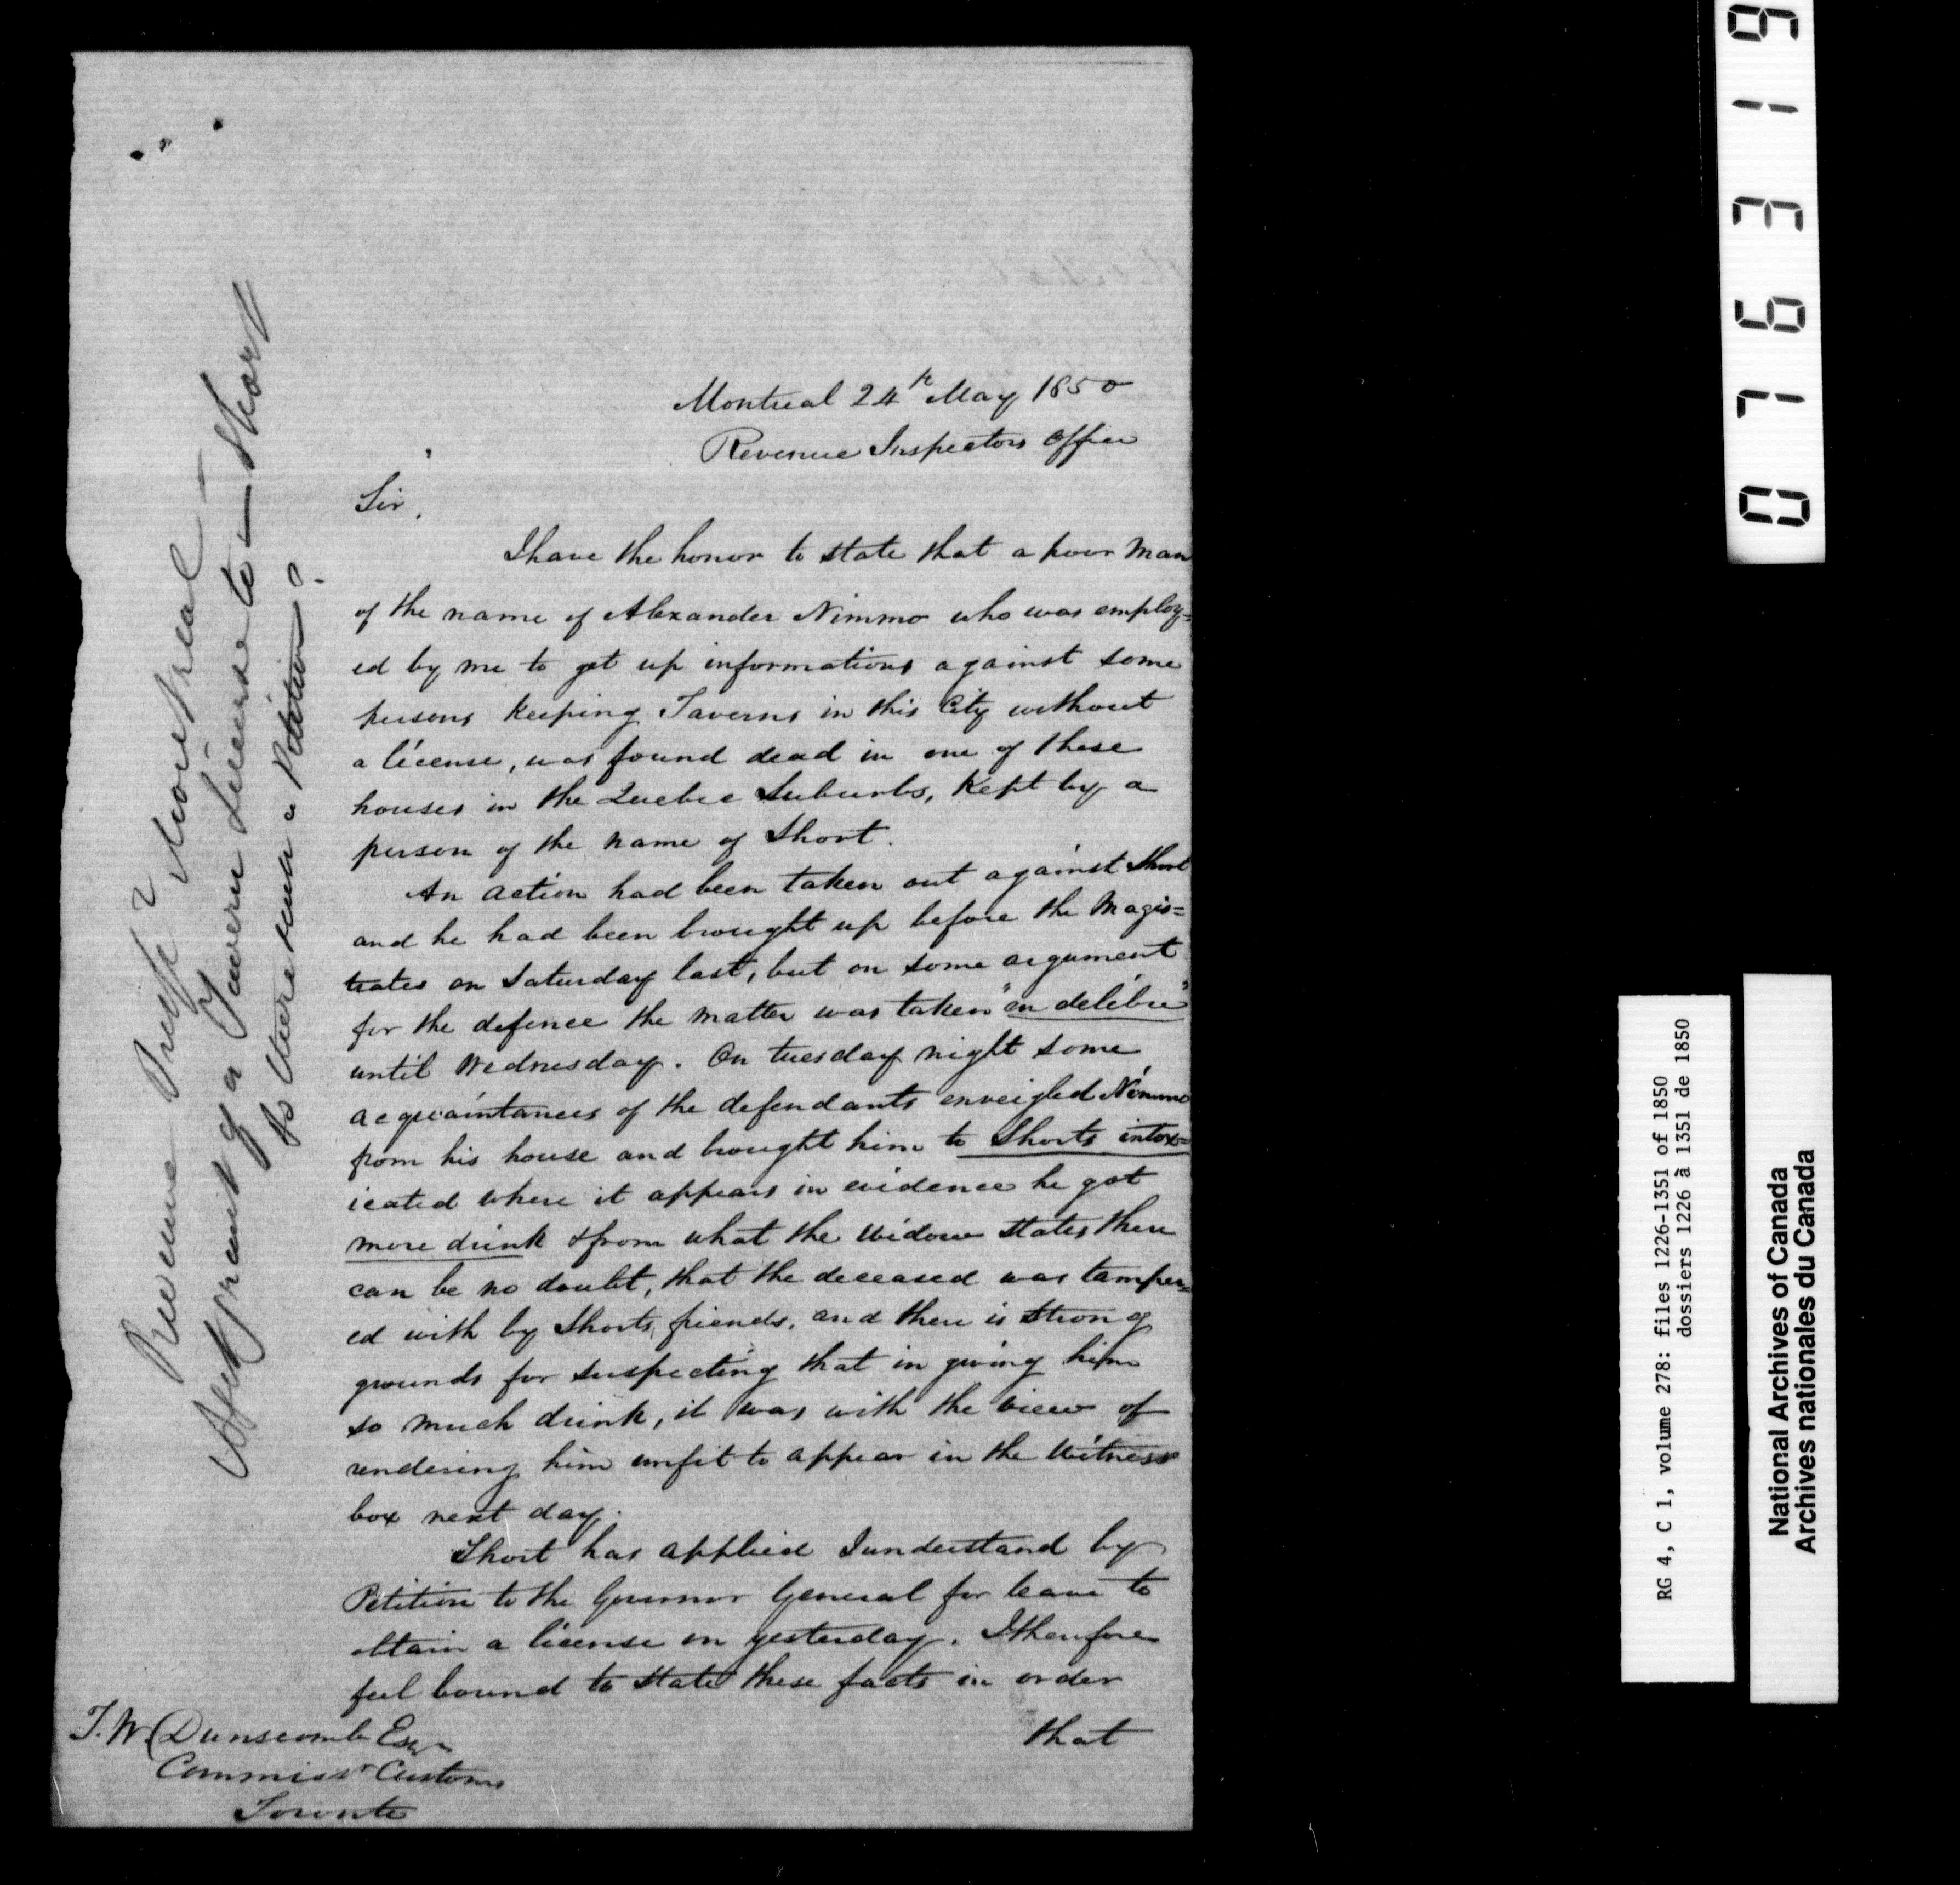 Montreal 24th May 1850
Revenue Inspectors Office
Sir,
I have the honor to state that a poor Man
of the name of Alexander Nimmo who was employ=
ed by me to get up informations against some
persons Keeping Taverns in this City without
a license, was found dead in one of these
houses in the Quebec Suburbs, Kept by a
person of the name of Short.
An action had been taken out against Short
and he had been brought up before the Magis=
trates on Saturday last, but on some argument
for the defence the matter was taken "en delibre"
until Wednesday. On tuesday night some
acquaintances of the defendants enveigled Nimmo
from his house and brought him to Shorts intox=
icated where it appears in evidence he got
more drink & from what the Widow states there
can be no doubt, that the deceased was tamper=
ed with by Shorts friends, and there is strong
grounds for suspecting that in giving him
so much drink, it was with the view of
rendering him unfit to appear in the Witness
box next day.
Short has applied I understand by
Petition to the Governor General for leave to
obtain a license on yesterday. I therefore
feel bound to state these facts in order
that
J. W. Dunscomb Esqr
Commissr Customs
Toronto
Revenue Inspr Montreal –
Agst grant of a Tavern License to – Short
Is there such a Petition?
076319
RG 4, C 1, volume 278: files 1226-1351 of 1850
dossiers 1226 à 1351 de 1850
National Archives of Canada
Archives nationales du Canada